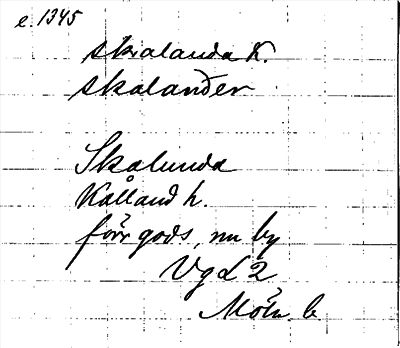 e. 1345
skalanda K.
skalander
Skalunda
Kålland h.
förr gods, nu by
VgL 2